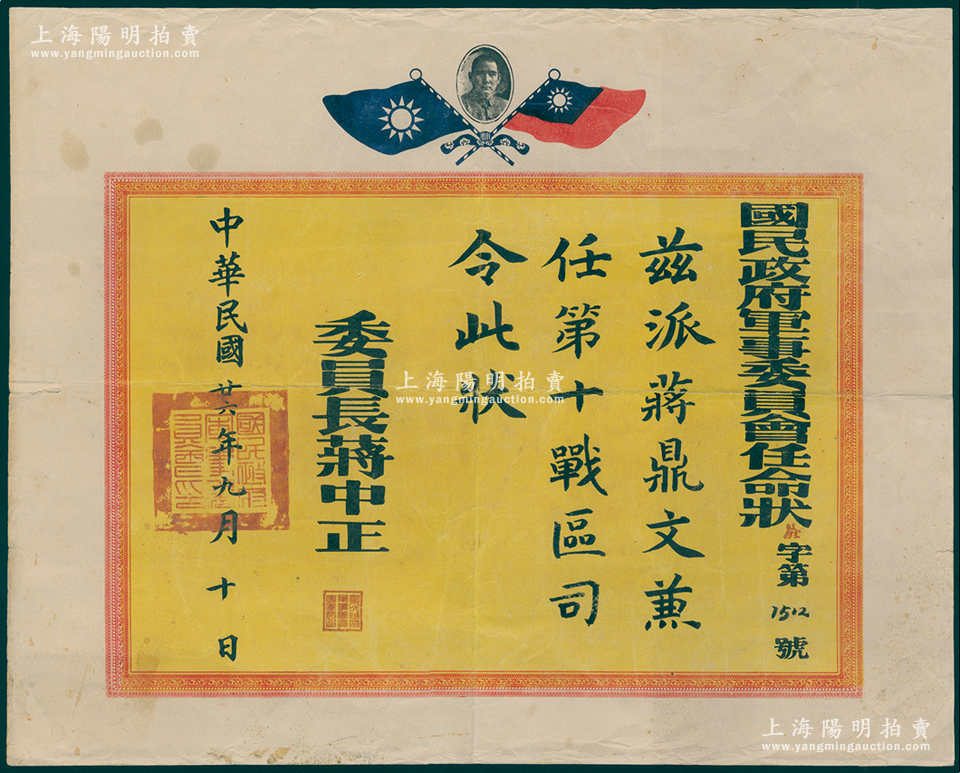 上海陽明拍賣
www.yangmingauction.com
國民政府軍事委員會任命狀
字第1512號
茲派蔣鼎文兼
任第十戰區司
令此狀
委員長蔣中正
中華民國廿六年九月十日
上海陽明拍賣
www.yangmingauction.com
上海陽明拍賣
www.yangmingauction.com